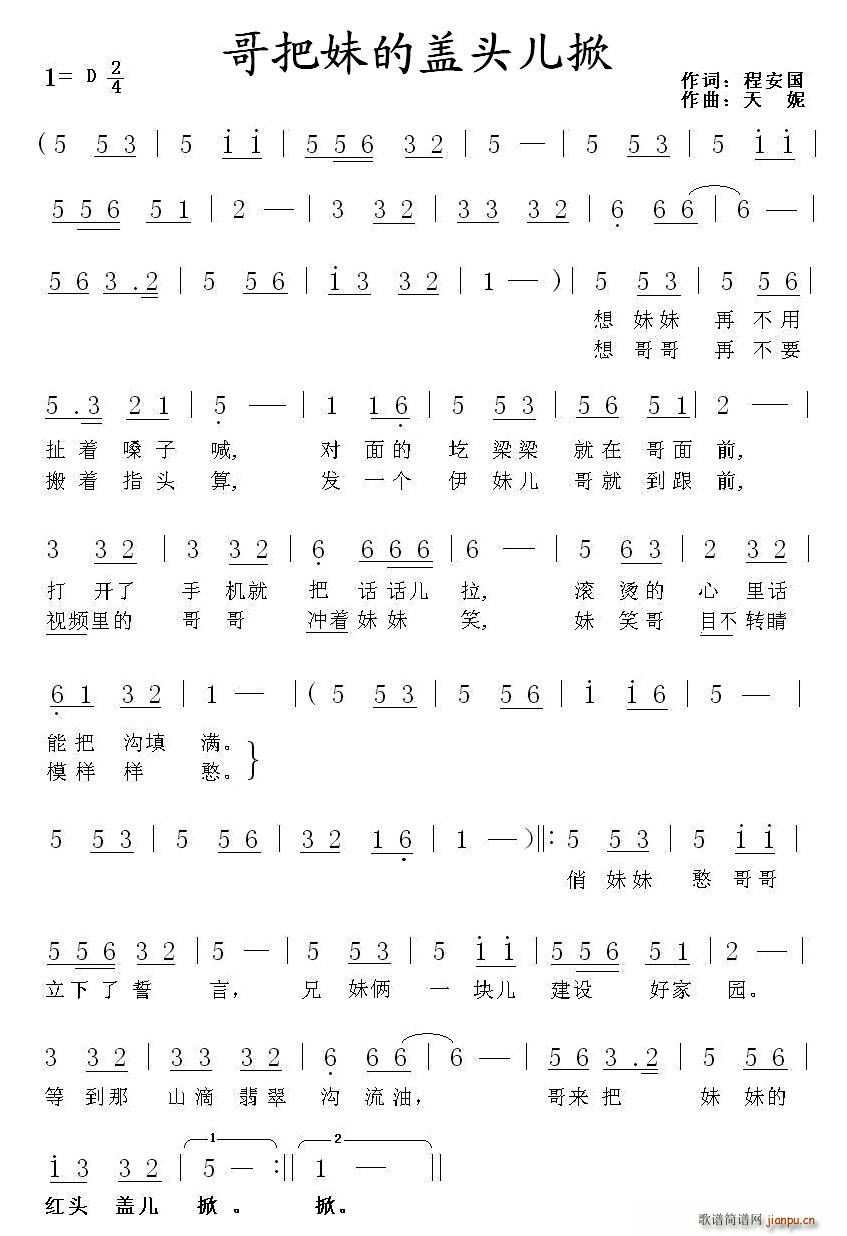 哥把妹的盖头儿掀
1= D 2/4
作词：程安国
作曲：天 妮
(5 53 | 5 i̇i̇ | 556 32 | 5 — | 5 53 | 5 i̇i̇ |
556 51 | 2 — | 3 32 | 33 32 | 6̣ 66 | 6 — |
56 3.2 | 5 56 | i̇3 32 | 1 — )| 5 53 | 5 56 |
想 妹妹 再 不用
想 哥哥 再 不要
5.3 21 | 5̣ — | 1 16̣ | 5 53 | 56 51 | 2 — |
扯着 嗓子 喊, 对 面的 圪 梁梁 就在 哥面 前,
搬着 指头 算, 发 一个 伊 妹儿 哥就 到跟 前,
3 32 | 3 32 | 6̣ 666 | 6 — | 5 63 | 2 32 |
打 开了 手 机就 把 话话儿 拉, 滚 烫的 心 里话
视频里的 哥 哥 冲着妹妹 笑, 妹 笑哥 目不转睛
6̣1 32 | 1 — |(5 53 | 5 56 | i̇ i̇6 | 5 — |
能把 沟填 满。
模样 样 憨。
5 53 | 5 56 | 32 16̣ | 1 — )‖: 5 53 | 5 i̇i̇ |
俏 妹妹 憨 哥哥
556 32 | 5 — | 5 53 | 5 i̇i̇ | 556 51 | 2 — |
立下了誓 言, 兄 妹俩 一 块儿 建设 好家 园。
3 32 | 33 32 | 6̣ 66 | 6 — | 56 3.2 | 5 56 |
等 到那 山滴 翡翠 沟 流油, 哥来把 妹 妹的
1 2
i̇3 32 | 5 — :‖ 1 — ‖
红头 盖儿 掀。 掀。
歌谱简谱网
jianpu.cn